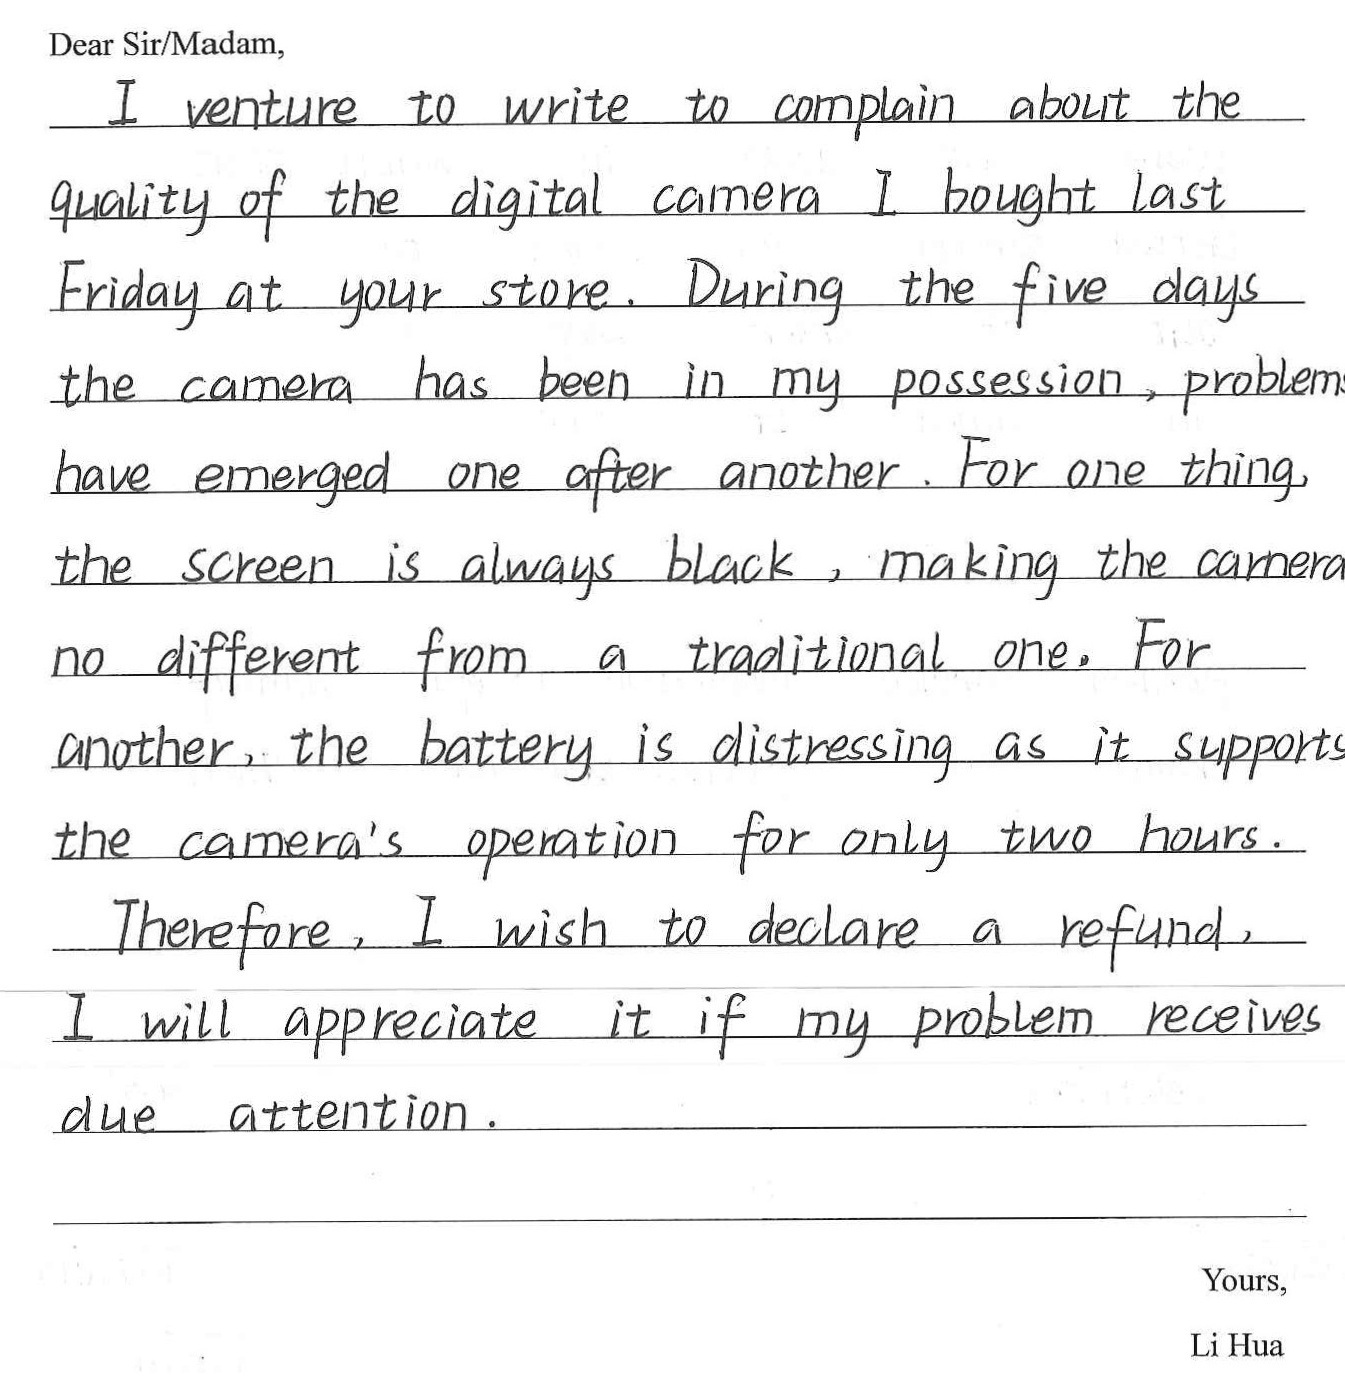 Dear Sir/Madam,
I venture to write to complain about the
quality of the digital camera I bought last
Friday at your store. During the five days
the camera has been in my possession, problems
have emerged one after another. For one thing,
the screen is always black, making the camera
no different from a traditional one. For
another, the battery is distressing as it supports
the camera's operation for only two hours.
Therefore, I wish to declare a refund,
I will appreciate it if my problem receives
due attention.
Yours,
Li Hua